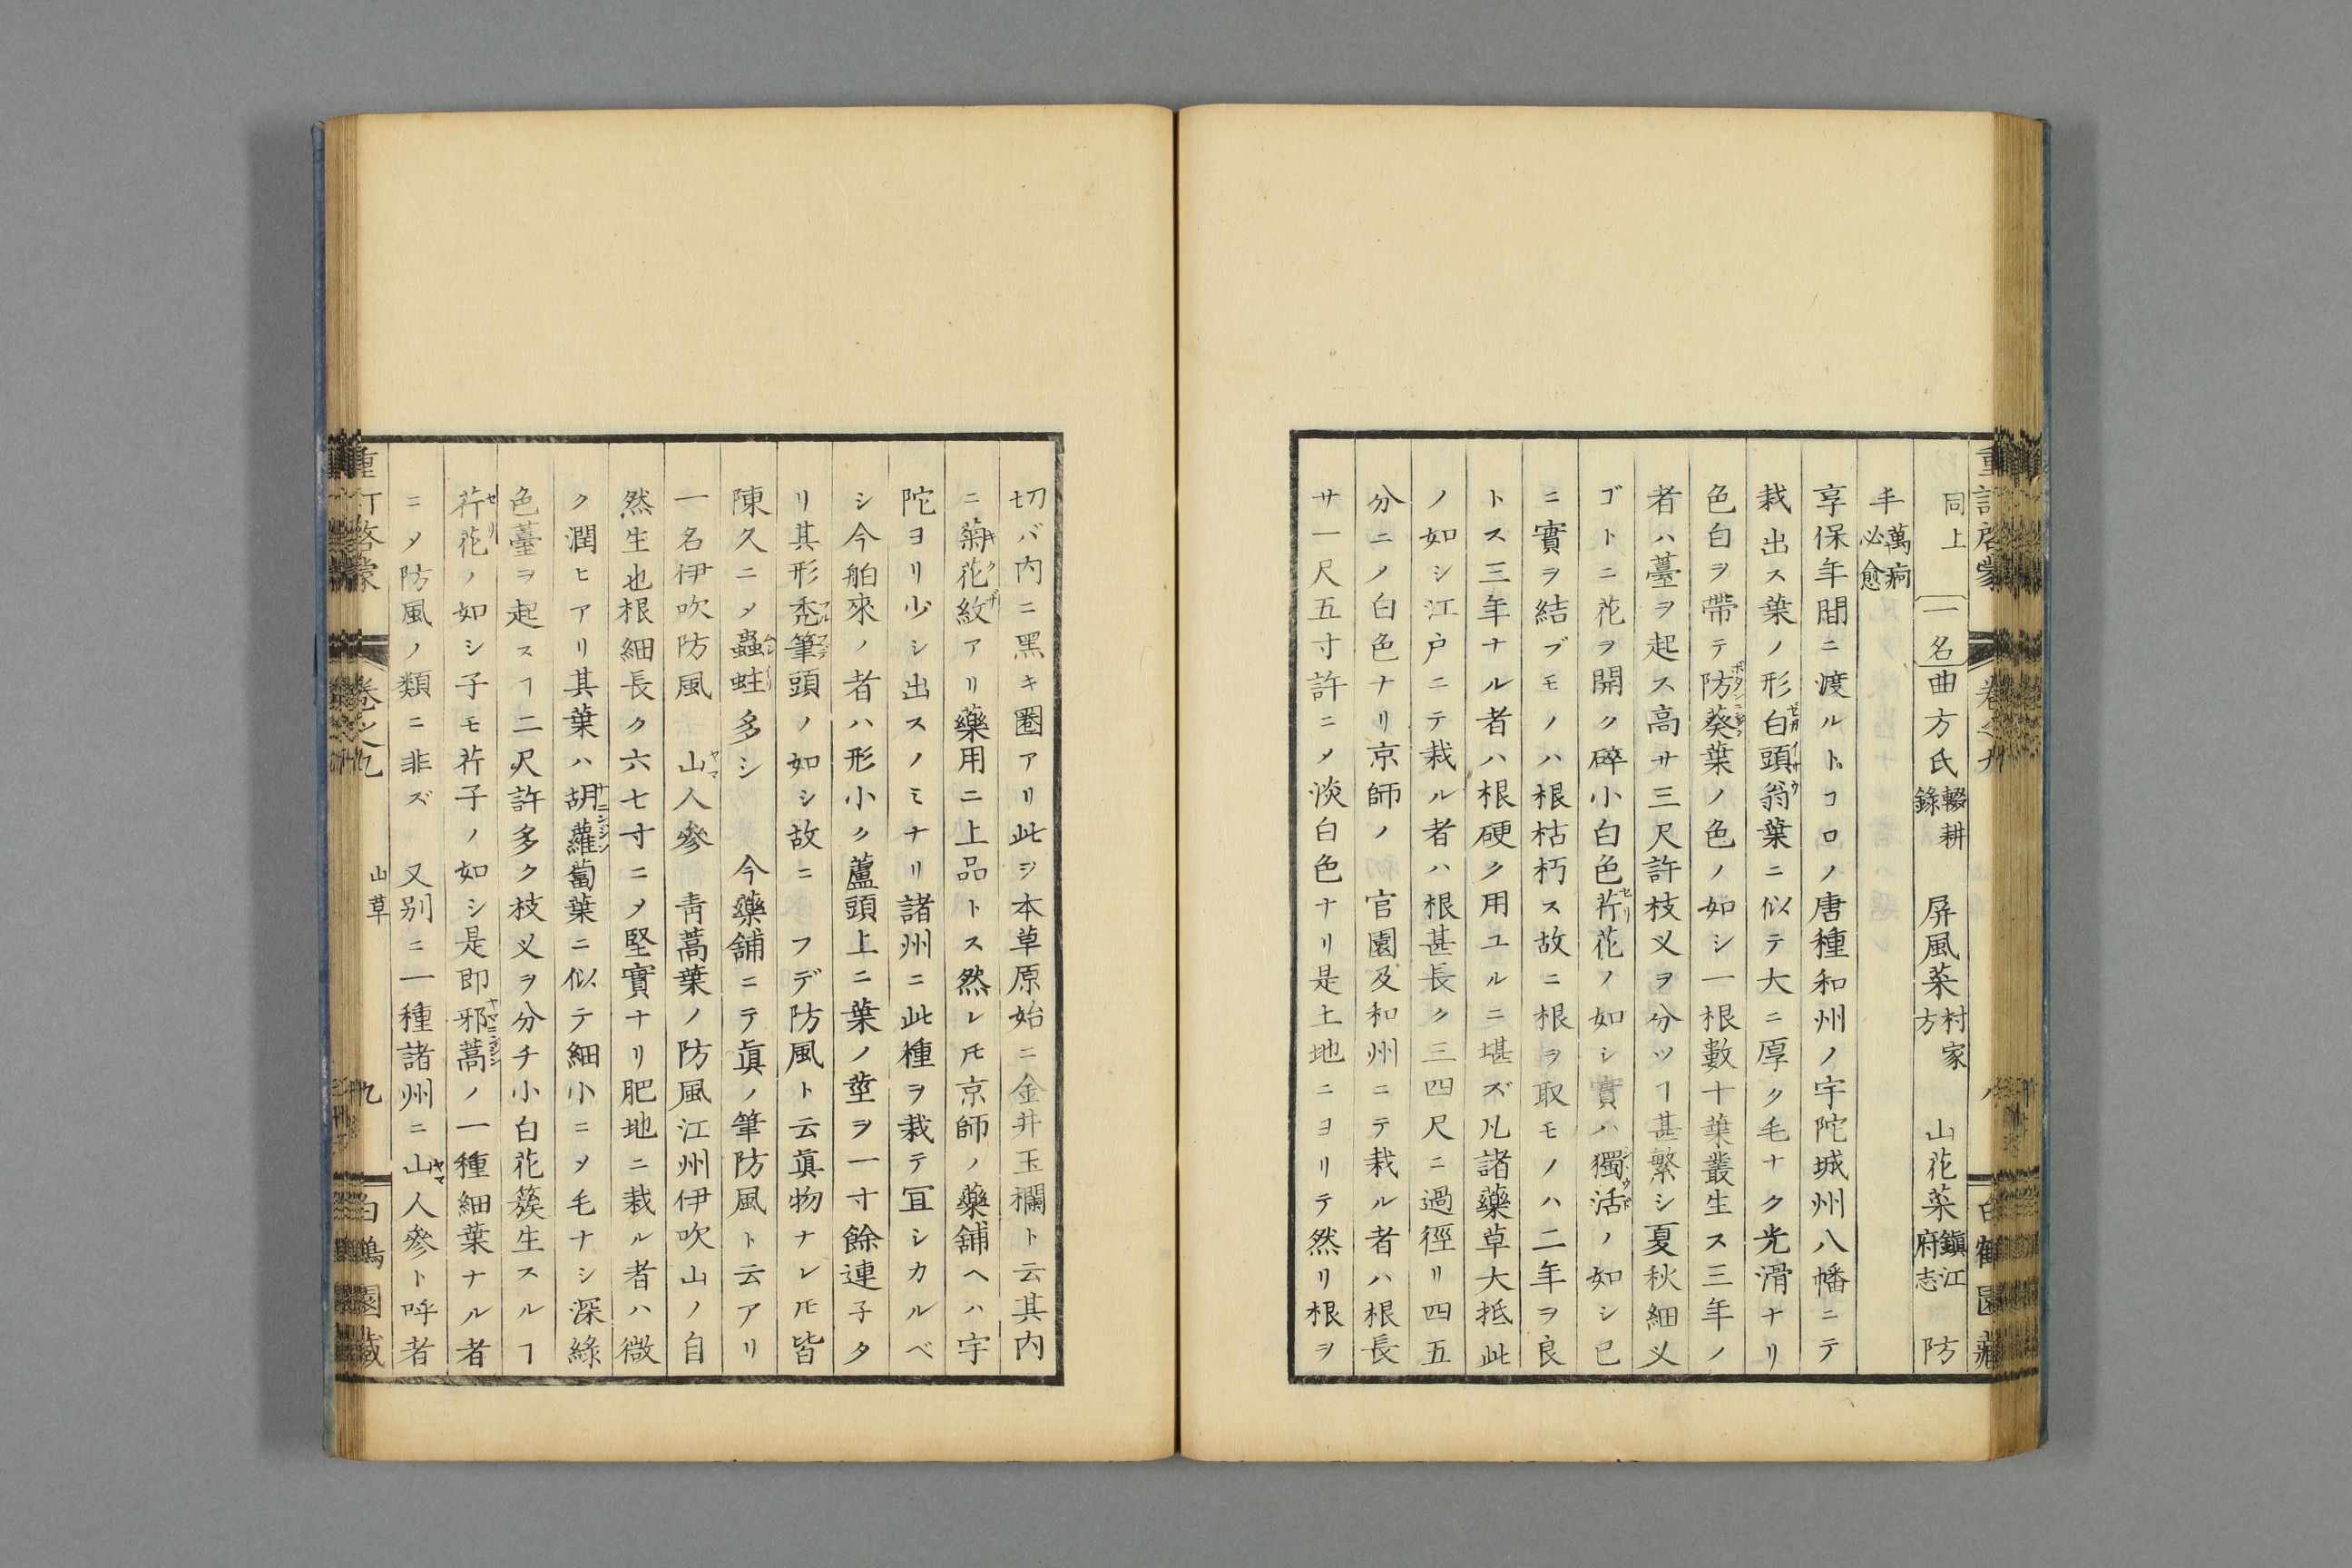 同上 一名 曲方氏 輟耕録 屏風菜 村家方 山花菜 鎭江府志 防
丰 萬病必愈
享保年間ニ渡ルトコロノ唐種和州ノ宇陀城州八幡ニテ
栽出ス葉ノ形白頭翁葉ニ似テ大ニ厚ク毛ナク光滑ナリ
色白ヲ帶テ防葵葉ノ色ノ如シ一根數十葉叢生ス三年ノ
者ハ薹ヲ起ス高サ三尺許枝义ヲ分ツヿ甚繁シ夏秋細义
ゴトニ花ヲ開ク碎小白色芹花ノ如シ實ハ獨活ノ如シ已
ニ實ヲ結ブモノハ根枯朽ス故ニ根ヲ取モノハ二年ヲ良
トス三年ナル者ハ根硬ク用ユルニ堪ズ凡諸藥草大抵此
ノ如シ江戸ニテ栽ル者ハ根甚長ク三四尺ニ過徑リ四五
分ニメ白色ナリ京師ノ 官園及和州ニテ栽ル者ハ根長
サ一尺五寸許ニメ淡白色ナリ是土地ニヨリテ然リ根ヲ
切バ内ニ黑キ圈アリ此ヲ本草原始ニ金井玉欄ト云其内
ニ菊花紋アリ藥用ニ上品トス然レ𪜈京師ノ藥舗ヘハ宇
陀ヨリ少シ出スノミナリ諸州ニ此種ヲ栽テ冝シカルベ
シ今舶來ノ者ハ形小ク蘆頭上ニ葉ノ莖ヲ一寸餘連子タ
リ其形禿筆頭ノ如シ故ニ フデ防風ト云眞物ナレ𪜈皆
陳久ニメ蟲蛀多シ 今藥舗ニテ眞ノ筆防風ト云アリ
一名伊吹防風 山人參 靑蒿葉ノ防風江州伊吹山ノ自
然生也根細長ク六七寸ニメ堅實ナリ肥地ニ栽ル者ハ微
ク潤ヒアリ其葉ハ胡蘿蔔葉ニ似テ細小ニメ毛ナシ深綠
色薹ヲ起スヿ二尺許多ク枝义ヲ分チ小白花簇生スルヿ
芹花ノ如シ子モ芹子ノ如シ是即邪蒿ノ一種細葉ナル者
ニメ防風ノ類ニ非ズ 又別ニ一種諸州ニ山人參ト呼者
山草
卷之九
九